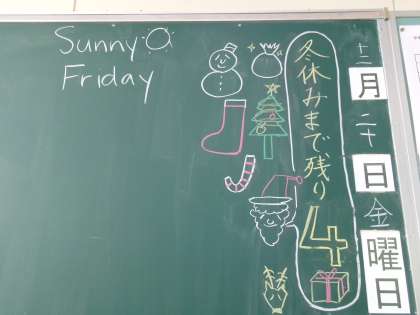 Sunny
Friday
冬休みまで残り4
十二月二十日金曜日